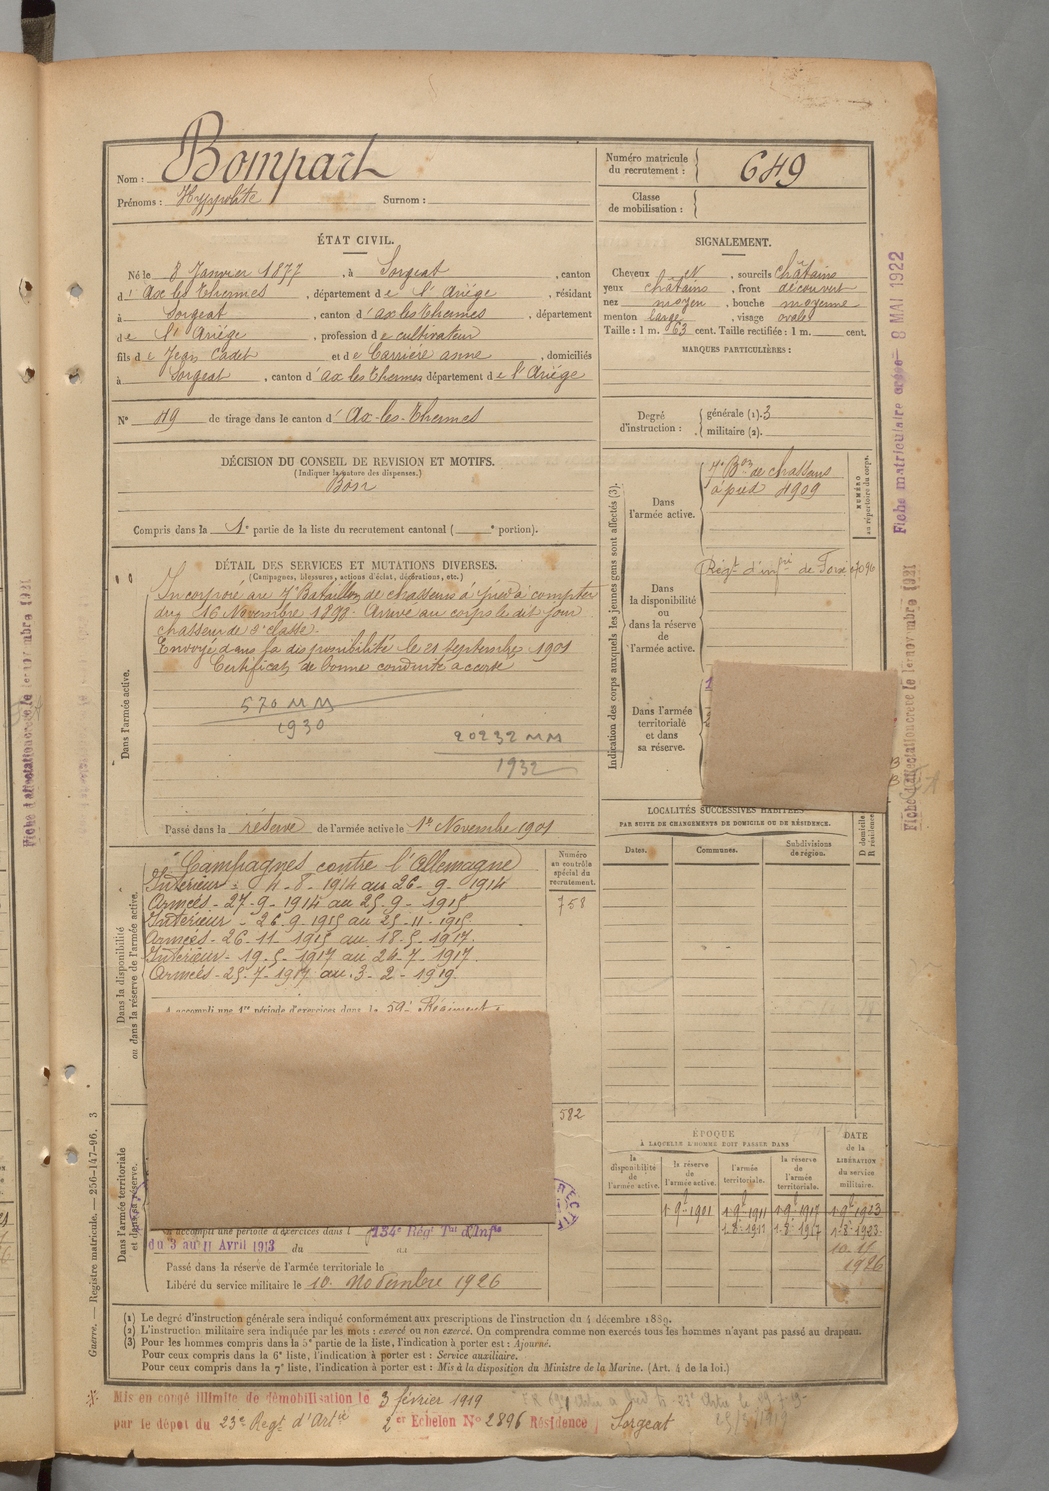 Nom : Bompart
Prénoms : Hyppolite Surnom :
Numéro matricule du recrutement : 649
Classe de mobilisation :
ÉTAT CIVIL.
Né le 8 Janvier 1877, à Sorgeat, canton
d' Ax les Thermes, département de l'Ariége, résidant
à Sorgeat, canton d'ax les Thermes, département
de l'Ariége, profession de cultivateur
fils de Jean Cadet et de Carrière anne, domiciliés
à Sorgeat, canton d'ax les Thermes département de l'Ariége
N° 49 de tirage dans le canton d'Ax-les-Thermes
SIGNALEMENT.
Cheveux N, sourcils châtains
yeux châtains, front découvert
nez moyen, bouche moyenne
menton large, visage ovale
Taille : 1 m. 63 cent. Taille rectifiée : 1 m. cent.
MARQUES PARTICULIÈRES :
Degré d'instruction : générale (1). 3
militaire (2).
DÉCISION DU CONSEIL DE REVISION ET MOTIFS.
(Indiquer la nature des dispenses.)
Bon
Compris dans la 1e partie de la liste du recrutement cantonal ( e portion).
Indication des corps auxquels les jeunes gens sont affectés (3).
NUMÉRO au répertoire du corps.
Dans l'armée active.
7e Bon de chasseurs
à pied 4909
Dans la disponibilité ou dans la réserve de l'armée active.
Régt d'infrie de Foix
Dans l'armée territoriale et dans sa réserve.
DÉTAIL DES SERVICES ET MUTATIONS DIVERSES.
(Campagnes, blessures, actions d'éclat, décorations, etc.)
Dans l'armée active.
Incorporé au 7e Bataillon de chasseurs à pied à compter
du 16 Novembre 1898. Arrivé au corps le dit jour
chasseur de 2e classe.
Envoyé dans la disponibilité le 21 septembre 1901
Certificat de bonne conduite accordé
570 MM
1930
20232 MM
1932
Passé dans la réserve de l'armée active le 1er Novembre 1901
Dans la disponibilité ou dans la réserve de l'armée active.
Campagnes contre l'Allemagne
Intérieur : 4-8-1914 au 26-9-1914
Armées - 27-9-1914 au 25-9-1915
Intérieur - 26-9-1915 au 25-11-1915
Armées - 26-11-1915 au 18-5-1917.
Intérieur - 19-5-1917 au 24-7-1917.
Armées - 25-7-1917 au 3-2-1919.
A accompli une 1re période d'exercices dans le 59e Régiment
Numéro au contrôle spécial du recrutement.
758
582
LOCALITÉS SUCCESSIVES HABITÉES
PAR SUITE DE CHANGEMENTS DE DOMICILE OU DE RÉSIDENCE.
Dates. Communes. Subdivisions de région. D domicile R résidence.
ÉPOQUE
À LAQUELLE L'HOMME DOIT PASSER DANS
DATE de la LIBÉRATION du service militaire.
la disponibilité de l'armée active.
la réserve de l'armée active.
l'armée territoriale.
la réserve de l'armée territoriale.
1-9-1901 1-9-1911 1-9-1917 1-9-1923
1-8-1911 1-8-1917 1-8-1923
10-11
1926
Dans l'armée territoriale et dans sa réserve.
A accompli une période d'exercices dans l 134e Régt Tal d'Infie
du 3 au 11 Avril 1913 du au
Passé dans la réserve de l'armée territoriale le
Libéré du service militaire le 10 Novembre 1926
(1) Le degré d'instruction générale sera indiqué conformément aux prescriptions de l'instruction du 4 décembre 1889.
(2) L'instruction militaire sera indiquée par les mots : exercé ou non exercé. On comprendra comme non exercés tous les hommes n'ayant pas passé au drapeau.
(3) Pour les hommes compris dans la 5e partie de la liste, l'indication à porter est : Ajourné.
Pour ceux compris dans la 6e liste, l'indication à porter est : Service auxiliaire.
Pour ceux compris dans la 7e liste, l'indication à porter est : Mis à la disposition du Ministre de la Marine. (Art. 4 de la loi.)
Mis en congé illimité de démobilisation le 3 février 1919
par le dépôt du 23e Regt d'Artie 2er Echelon N° 2896 Résidence Sorgeat
Guerre. — Registre matricule. — 256-147-96. 3
Fiche matriculaire créée 8 MAI 1922
Fiche d'affectation créée le 1er novembre 1921
Fiche d'affectation créée le 1er novembre 1921